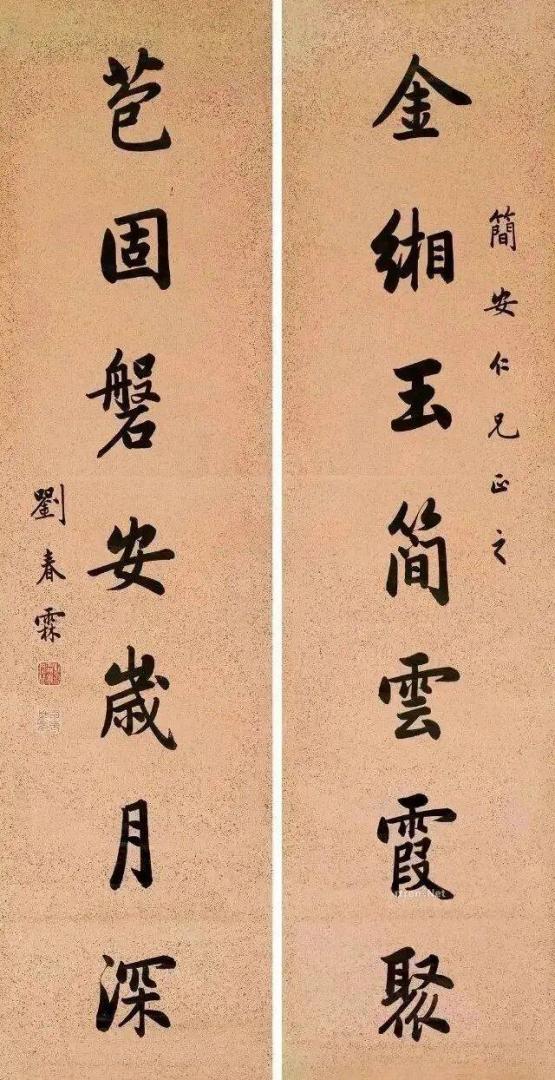 簡安仁兄正之
金緗玉簡雲霞聚
苞固磐安歲月深
劉春霖